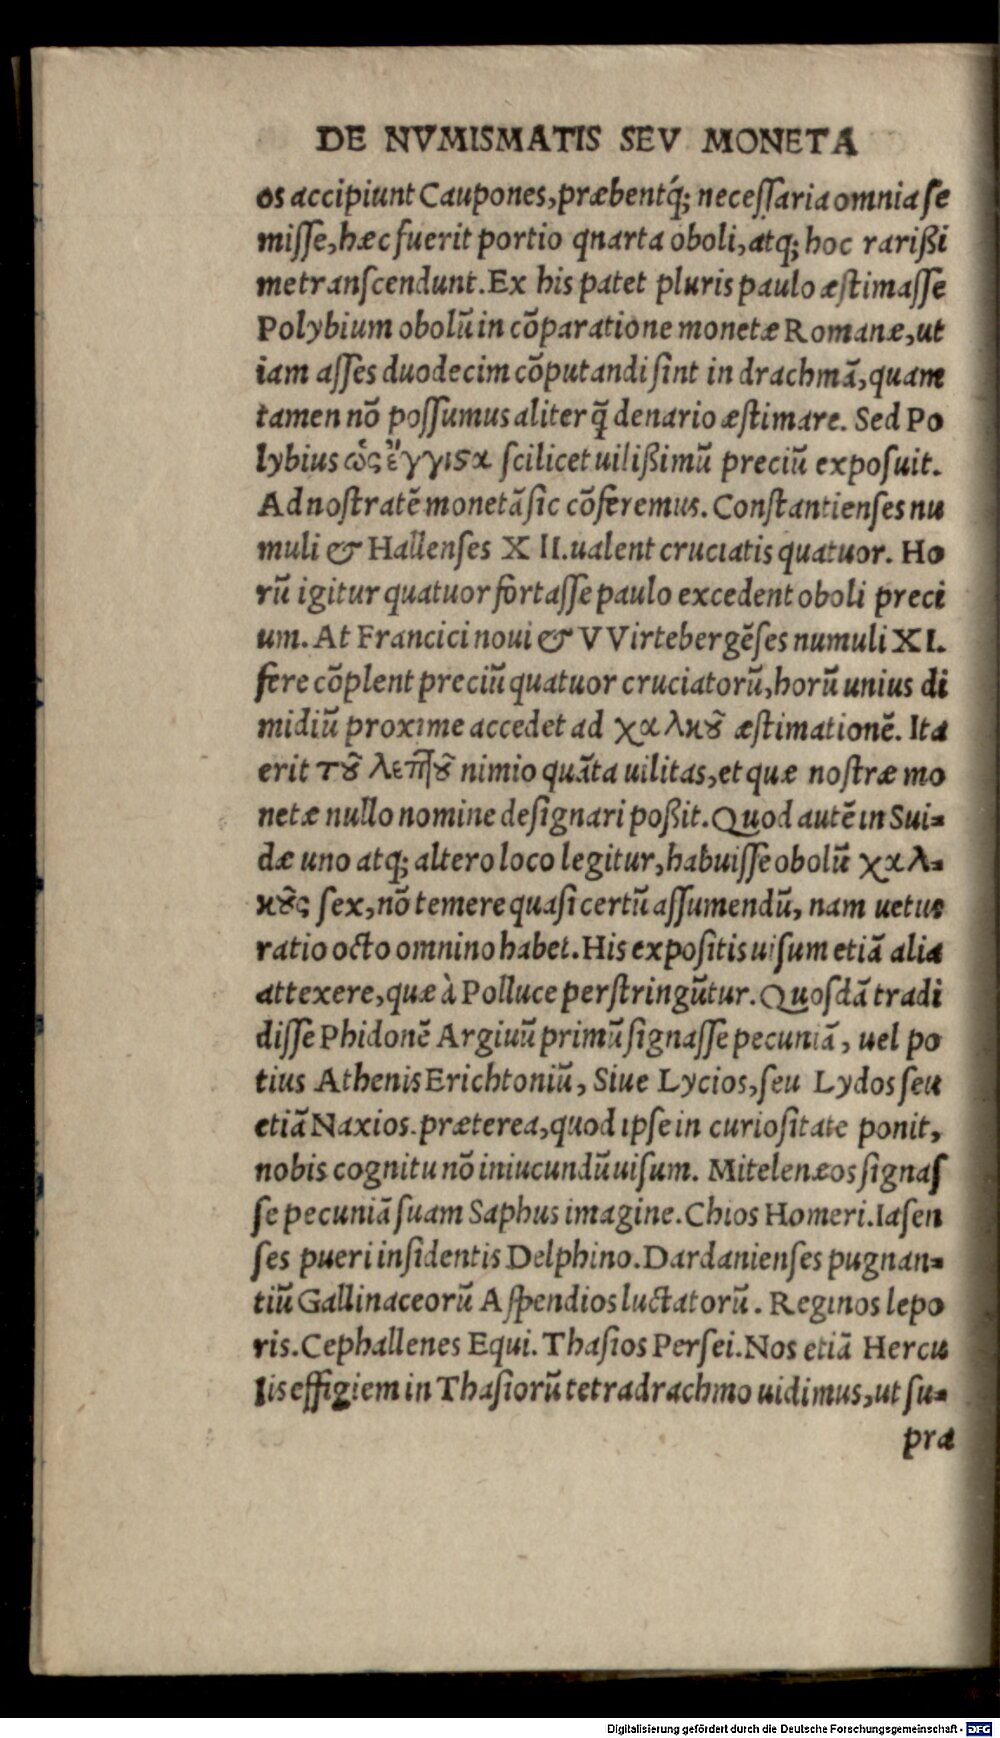 DE NVMISMATIS SEV MONETA
os accipiunt Caupones, præbentq́; neceſſaria omnia ſe
miſſe, hæc fuerit portio qnarta oboli, atq; hoc rariſſi
me tranſcendunt. Ex his patet pluris paulo æſtimaſſe
Polybium obolũ in cõparatione monetæ Romanæ, ut
iam aſſes duodecim cõputandi ſint in drachmã, quam
tamen nõ poſſumus aliter q̃ denario æſtimare. Sed Po
lybius ὡς ἔγγιϛα ſcilicet uiliſſimũ preciũ expoſuit.
Ad noſtratẽ monetã ſic cõferemus. Conſtantienſes nu
muli & Hallenſes XII. ualent cruciatis quatuor. Ho
rũ igitur quatuor fortaſſe paulo excedent oboli preci
um. At Francici noui & VVirtebergẽſes numuli XI.
fere cõplent preciũ quatuor cruciatorũ, horũ unius di
midiũ proxime accedet ad χαλκȣ͂ æſtimationẽ. Ita
erit τȣ͂ λεπτȣ͂ nimio quãta uilitas, et quæ noſtræ mo
netæ nullo nomine deſignari poſſit. Quod autẽ in Sui-
dæ uno atq; altero loco legitur, habuiſſe obolũ χαλ-
κȣ͂ς ſex, nõ temere quaſi certũ aſſumendũ, nam uetus
ratio octo omnino habet. His expoſitis uiſum etiã alia
attexere, quæ à Polluce perſtringũtur. Quoſdã tradi
diſſe Phidonẽ Argiuũ primũ ſignaſſe pecuniã, uel po
tius Athenis Erichtoniũ, Siue Lycios, ſeu Lydos ſeu
etiã Naxios. præterea, quod ipſe in curioſitate ponit,
nobis cognitu nõ iniucundũ uiſum. Mitelenæos ſignaſ
ſe pecuniã ſuam Saphus imagine. Chios Homeri. Iaſen
ſes pueri inſidentis Delphino. Dardanienſes pugnan-
tiũ Gallinaceorũ Aſpendios luctatorũ. Reginos lepo
ris. Cephallenes Equi. Thaſios Perſei. Nos etiã Hercu
lis effigiem in Thaſiorũ tetradrachmo uidimus, ut ſu-
pra
Digitalisierung gefördert durch die Deutsche Forschungsgemeinschaft - DFG